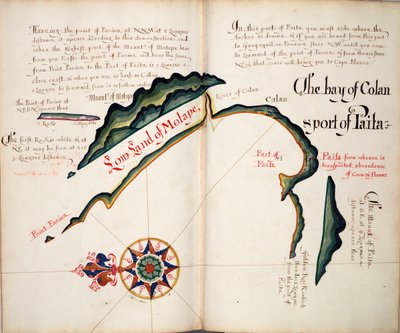 Having the point of Parina at NNW at 3 Leagues
distance it apears according to this demonstration: and
when the highest part of the Mount of Motape bear
from you East. the point of Parina will bear the same
from Point Parina to the Port of Paita is 7 Leagues
close coast: & when you are as high as Colan
a League to seaward forme is as before
Mount of Motape
the Point of Parina at
NEBN apeares thus
a Rocke
The first Rock is white & at
NE it may be seen at 2 or
3 Leagues Distance.
Low Land of Motape
Point Parina
River of Colan
Colan
In this port of Paita you may ride where the
Anchor is drawn: & if you are bound from this port
to Guayaquil or Panama steer NW until you come
to Leeward of the point of Parina & from thence steer
N, that course will bring you to Cape Blanco.
The bay of Colan
& port of Paita
Port of
Paita
Paita from whence is
transported abundance
of Corn & flower
The Mount of Paita
at S.E. at 5 Leagues
distance, apears thus